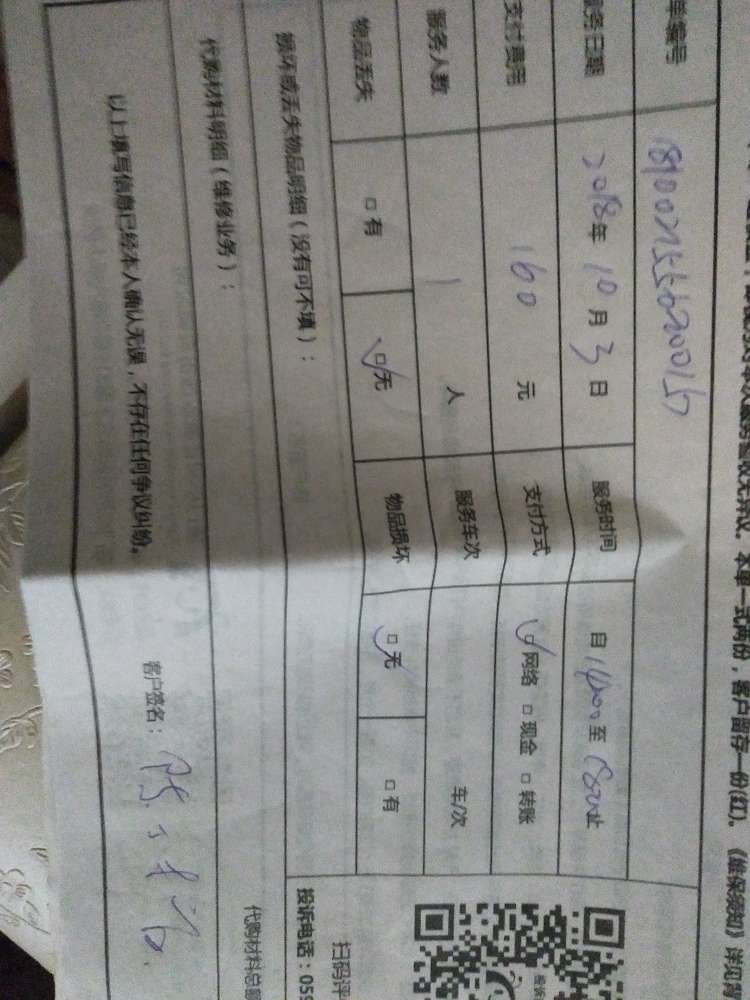 本单一式两份，客户留存一份(红)。《维保须知》详见背
单编号
服务日期 2018年 10月 3日 服务时间 自 14:00 至 18:00 止
支付费用 160 元 支付方式 网络 □ 现金 □ 转账
服务人数 1 人 服务车次 车/次
物品丢失 □ 有 □ 无 物品损坏 □ 无 □ 有
损坏或丢失物品明细（没有可不填）：
扫码评
投诉电话：059
代购材料明细（维修业务）：
代购材料总额
以上填写信息已经本人确认无误，不存在任何争议纠纷。
客户签名：